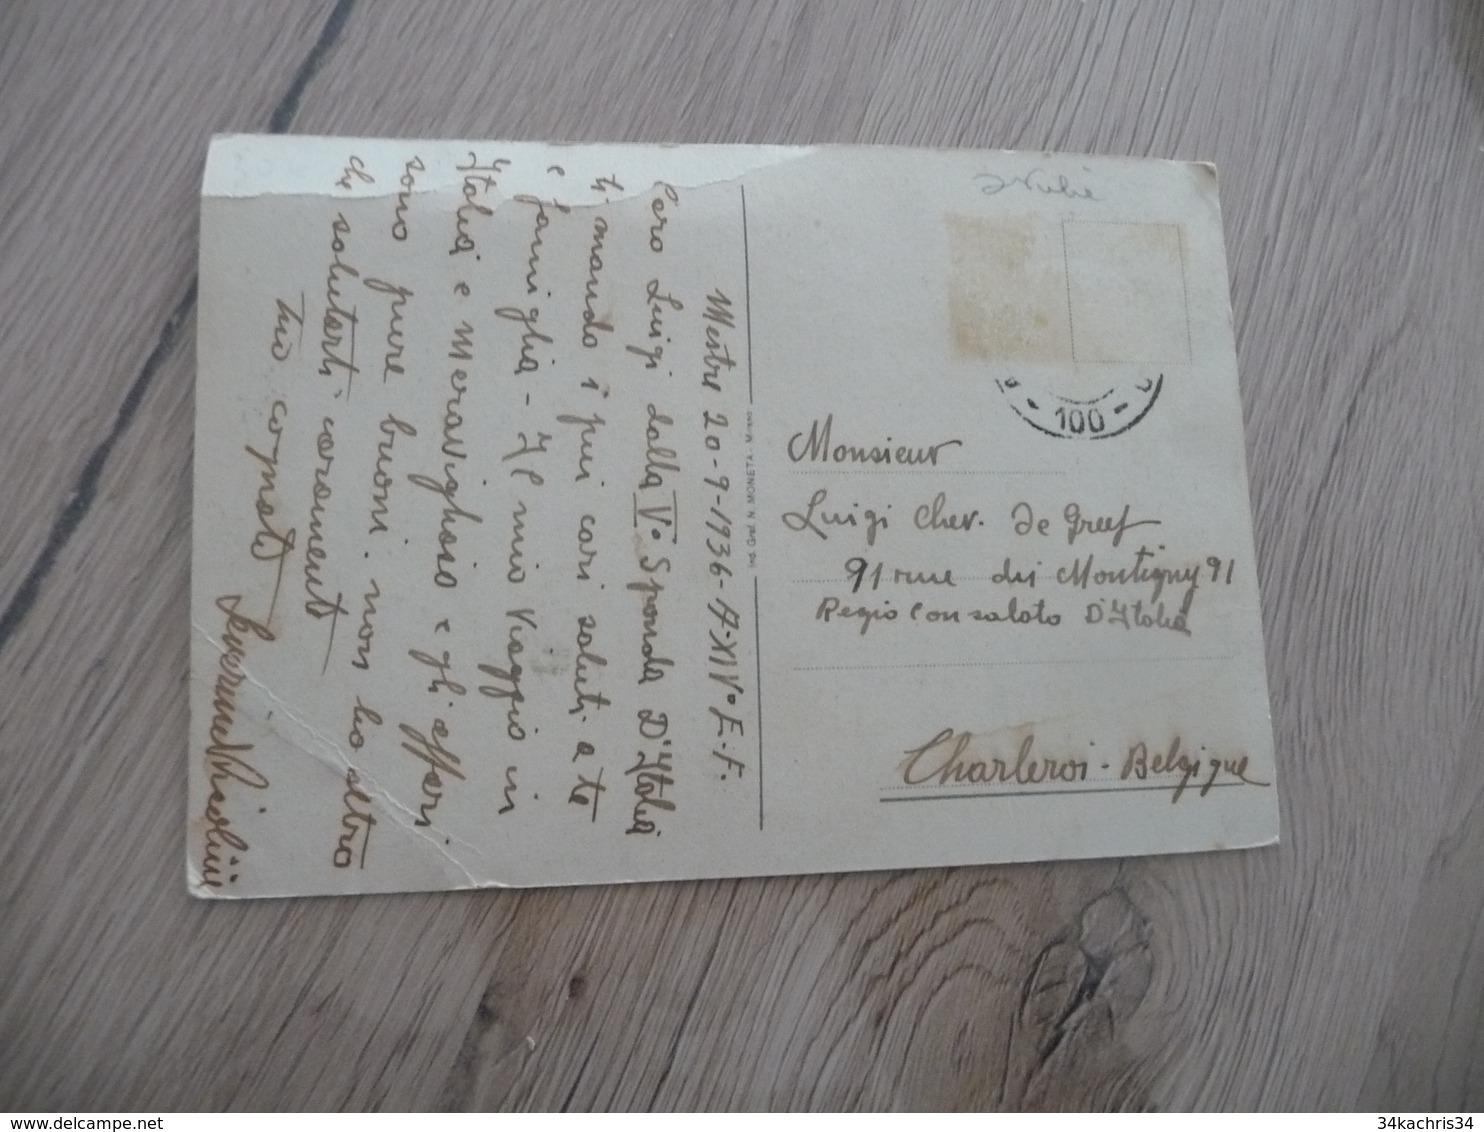 Mestre 20-9-1936-A-XIV° E.F.
Caro Luigi dalla V° Sponda D'Italia
ti mando i piu cari saluti a te
e famiglia - Il mio viaggio in
Italia e meraviglioso e gli affari
sono pure buoni. non ho altro
che salutarti caramente
tuo cognato
Ind. Graf. N. MONETA - Milano
100
Monsieur
Luigi Chev. De Greef
91 rue de Montigny 91
Regio Consolato D'Italia
Charleroi - Belgique
34kachris34
delcampe.net